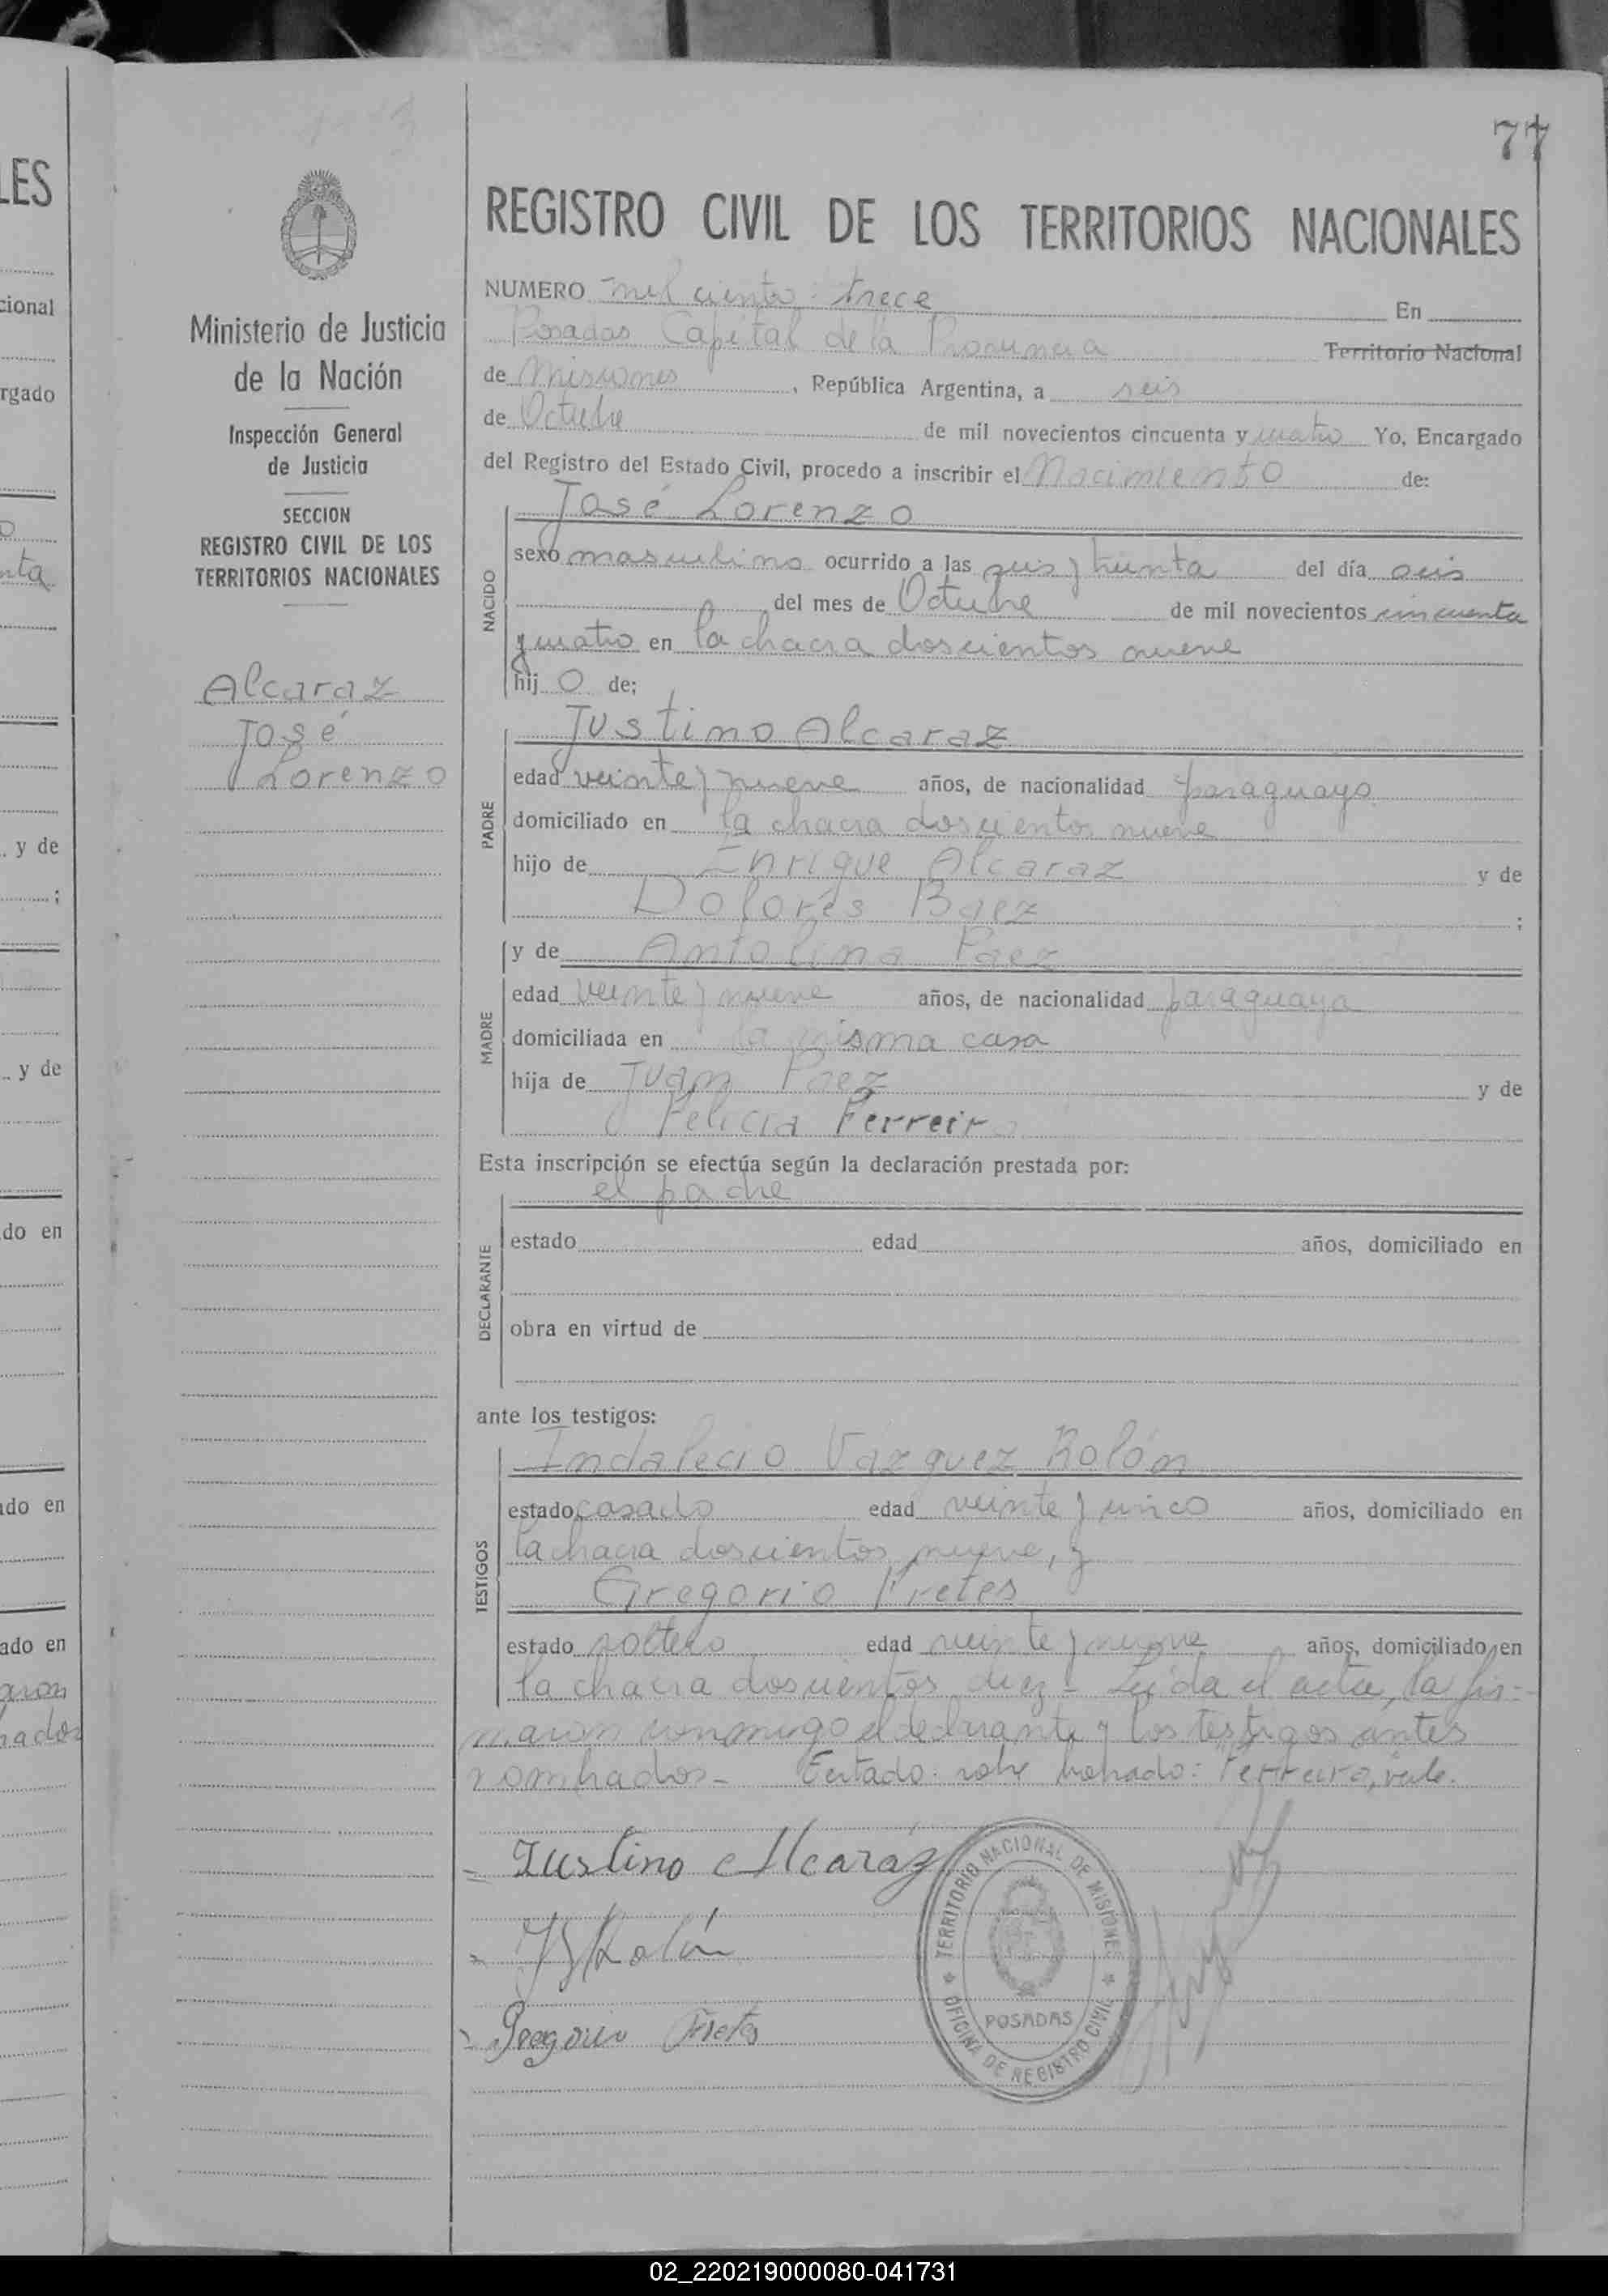 77
1113
LES
cional
rgado
o
nta
y de
;
y de
do en
do en
ado en
aron
rados
Ministerio de Justicia
de la Nación
Inspección General
de Justicia
SECCION
REGISTRO CIVIL DE LOS
TERRITORIOS NACIONALES
Alcaraz
José
Lorenzo
REGISTRO CIVIL DE LOS TERRITORIOS NACIONALES
NUMERO mil ciento trece En
Posadas Capital de la Provincia Territorio Nacional
de Misiones, República Argentina, a seis
de Octubre de mil novecientos cincuenta y cuatro Yo, Encargado
del Registro del Estado Civil, procedo a inscribir el Nacimiento de:
José Lorenzo
NACIDO
sexo masculino ocurrido a las seis y treinta del día seis
del mes de Octubre de mil novecientos cincuenta
y cuatro en la chacra doscientos nueve
hij o de;
Justino Alcaraz
PADRE
edad veinte y nueve años, de nacionalidad paraguayo
domiciliado en la chacra doscientos nueve
hijo de Enrique Alcaraz y de
Dolores Baez ;
y de Antolina Paez
MADRE
edad veinte y nueve años, de nacionalidad paraguaya
domiciliada en la misma casa
hija de Juan Paez y de
Felicia Ferreira
Esta inscripción se efectúa según la declaración prestada por:
el padre
DECLARANTE
estado edad años, domiciliado en
obra en virtud de
ante los testigos:
Indalecio Vazquez Rolón
TESTIGOS
estado casado edad veinte y cinco años, domiciliado en
la chacra doscientos nueve, y
Gregorio Fretes
estado soltero edad veinte y nueve años, domiciliado en
la chacra doscientos diez - Leída el acta, la fir=
maron conmigo el declarante y los testigos antes
nombrados - sobre borrado: Ferreira, vale.
= Justino Alcaráz
Rolón
Gregorio Fretes
TERRITORIO NACIONAL DE MISIONES
POSADAS
OFICINA DE REGISTRO CIVIL
02_220219000080-041731